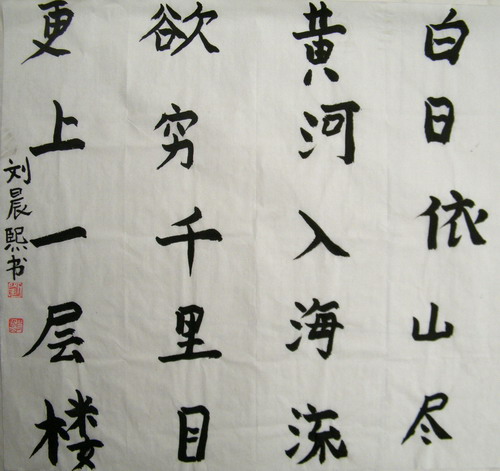 白日依山尽
黄河入海流
欲穷千里目
更上一层楼
刘晨熙书